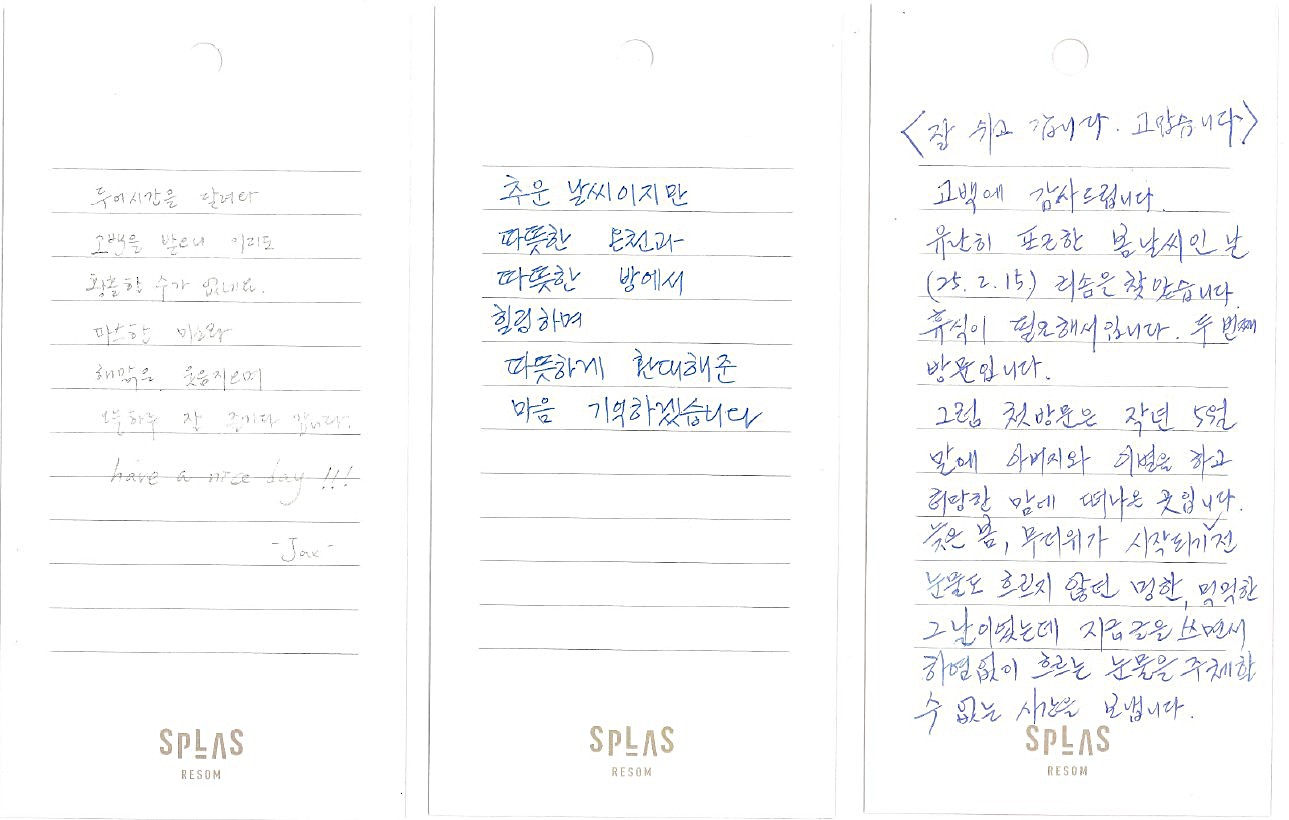 두어시간을 달려다
고백을 받으니 이리도
황홀할 수가 없네요.
따스한 미소와
해맑은 웃음지으며
하루 잘 즐기다 갑니다.
have a nice day !!!
- Jax -
SPLAS
RESOM
추운 날씨이지만
따뜻한 온천과
따뜻한 방에서
힐링하며
따뜻하게 환대해준
마음 기억하겠습니다
SPLAS
RESOM
<잘 쉬고 갑니다. 고맙습니다>
고백에 감사드립니다.
유난히 포근한 봄날씨인 날
(25. 2. 15.) 리솜을 찾았습니다.
휴식이 필요해서입니다. 두 번째
방문입니다.
그럼 첫방문은 작년 5월
말에 아버지와 이별을 하고
허망한 맘에 떠나온 곳입니다.
늦은 봄, 무더위가 시작되기 전
눈물도 흐르지 않던 멍한, 먹먹한
그날이었는데 지금 글을 쓰면서
하염없이 흐르는 눈물을 주체할
수 없는 시간을 보냅니다.
SPLAS
RESOM